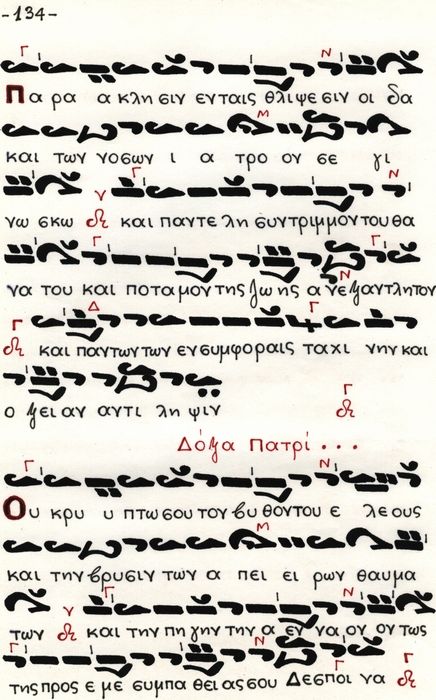 -134-
Πα ρα α κλη σιν εν ταις θλιψε σιν οι δα
και των νοσων ι α τρο ον σε γι
νω σκω και παντε λη συντριμμον του θα
να του και ποταμον της ζω ης α νε ξαντλητον
και παντων των εν συμφοραις ταχι νην και
ο ξει αν αντι λη ψιν
Δόξα Πατρί...
Ου κρυ υ πτω σου τον βυ θον του ε λεους
και την βρυσιν των α πει ει ρων θαυμα
των και την πη γην την α εν να ον ον τως
της προς ε με συμπα θει ας σου Δεσποι να